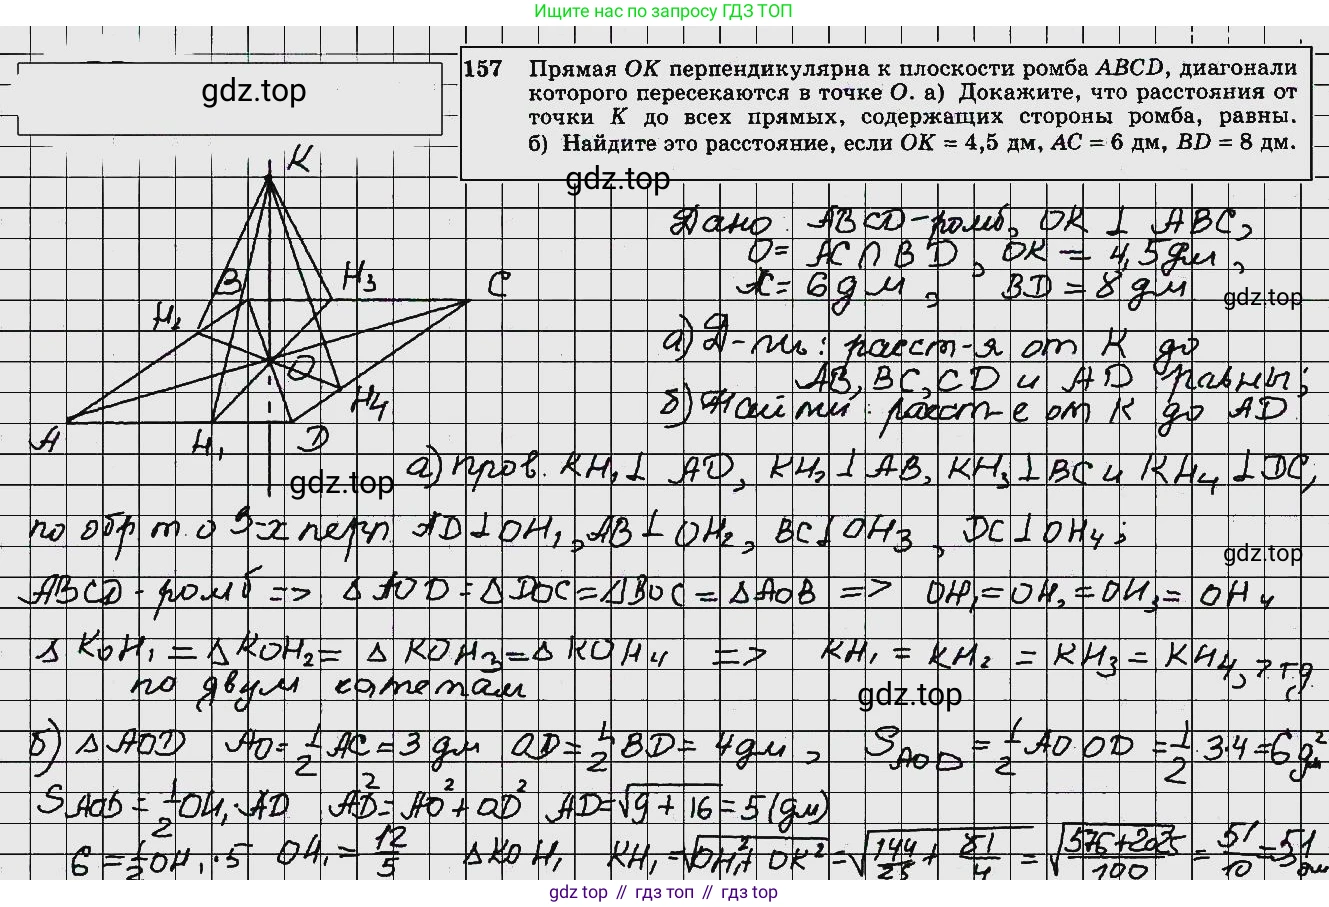 Ищите нас по запросу ГДЗ ТОП
gdz.top
157 Прямая OK перпендикулярна к плоскости ромба ABCD, диагонали
которого пересекаются в точке O. а) Докажите, что расстояния от
точки K до всех прямых, содержащих стороны ромба, равны.
б) Найдите это расстояние, если OK = 4,5 дм, AC = 6 дм, BD = 8 дм.
gdz.top
K
B
H₃
C
H₂
O
H₄
A
H₁
D
Дано: ABCD-ромб, OK ⊥ ABC,
O = AC ∩ BD, OK = 4,5 дм,
AC = 6 дм, BD = 8 дм
gdz.top
а) Д-ть: расст-я от K до
AB, BC, CD и AD равны;
б) Найти: расст-е от K до AD
gdz.top
а) пров. KH₁ ⊥ AD, KH₂ ⊥ AB, KH₃ ⊥ BC и KH₄ ⊥ DC,
по обр т. о 3-х перп AD ⊥ OH₁, AB ⊥ OH₂, BC ⊥ OH₃, DC ⊥ OH₄;
gdz.top
ABCD - ромб => △AOD = △DOC = △BOC = △AOB => OH₁ = OH₂ = OH₃ = OH₄
△KOH₁ = △KOH₂ = △KOH₃ = △KOH₄ => KH₁ = KH₂ = KH₃ = KH₄, чтд
по двум катетам
gdz.top
б) △AOD AO = 1/2 AC = 3 дм OD = 1/2 BD = 4 дм, S_AOD = 1/2 AO·OD = 1/2·3·4 = 6 дм²
S_AOD = 1/2 OH₁·AD AD² = AO² + OD² AD = √(9 + 16) = 5 (дм)
6 = 1/2 OH₁·5 OH₁ = 12/5 △KOH₁ KH₁ = √(OH₁² + OK²) = √(144/25 + 81/4) = √((576+2025)/100) = 51/10 = 5,1 дм
gdz.top // гдз топ // гдз top